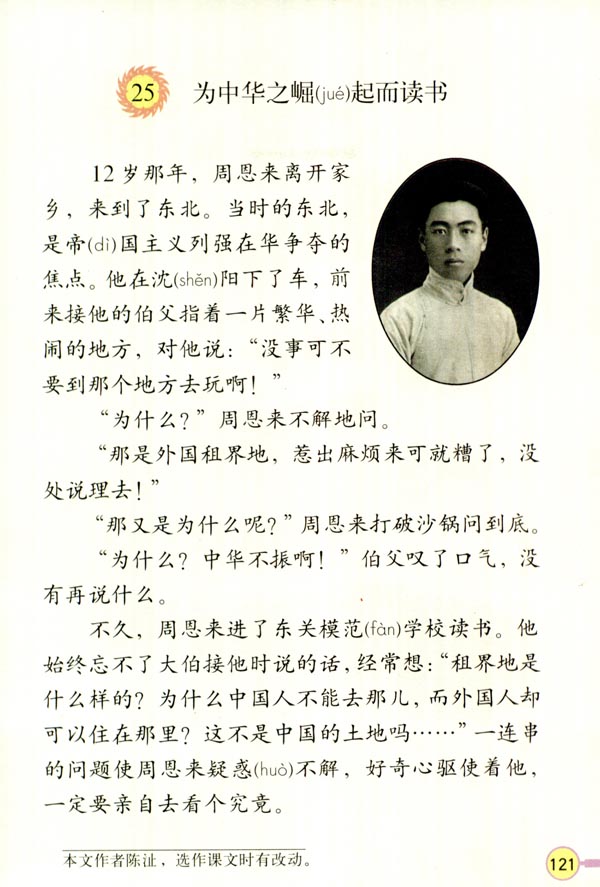 25 为中华之崛(jué)起而读书
12岁那年，周恩来离开家
乡，来到了东北。当时的东北，
是帝(dì)国主义列强在华争夺的
焦点。他在沈(shěn)阳下了车，前
来接他的伯父指着一片繁华、热
闹的地方，对他说：“没事可不
要到那个地方去玩啊！”
“为什么？”周恩来不解地问。
“那是外国租界地，惹出麻烦来可就糟了，没
处说理去！”
“那又是为什么呢？”周恩来打破沙锅问到底。
“为什么？中华不振啊！”伯父叹了口气，没
有再说什么。
不久，周恩来进了东关模范(fàn)学校读书。他
始终忘不了大伯接他时说的话，经常想：“租界地是
什么样的？为什么中国人不能去那儿，而外国人却
可以住在那里？这不是中国的土地吗……”一连串
的问题使周恩来疑惑(huò)不解，好奇心驱使着他，
一定要亲自去看个究竟。
本文作者陈沚，选作课文时有改动。
121